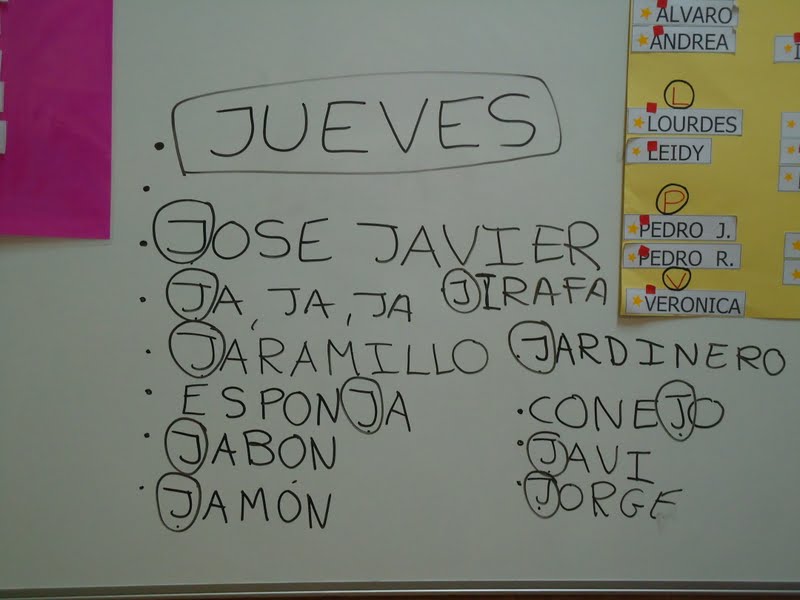 JUEVES
JOSE JAVIER
JA, JA, JA JIRAFA
JARAMILLO JARDINERO
ESPONJA
CONEJO
JABON
JAVI
JAMÓN
JORGE
ALVARO
ANDREA
L
LOURDES
LEIDY
P
PEDRO J.
PEDRO R.
V
VERONICA